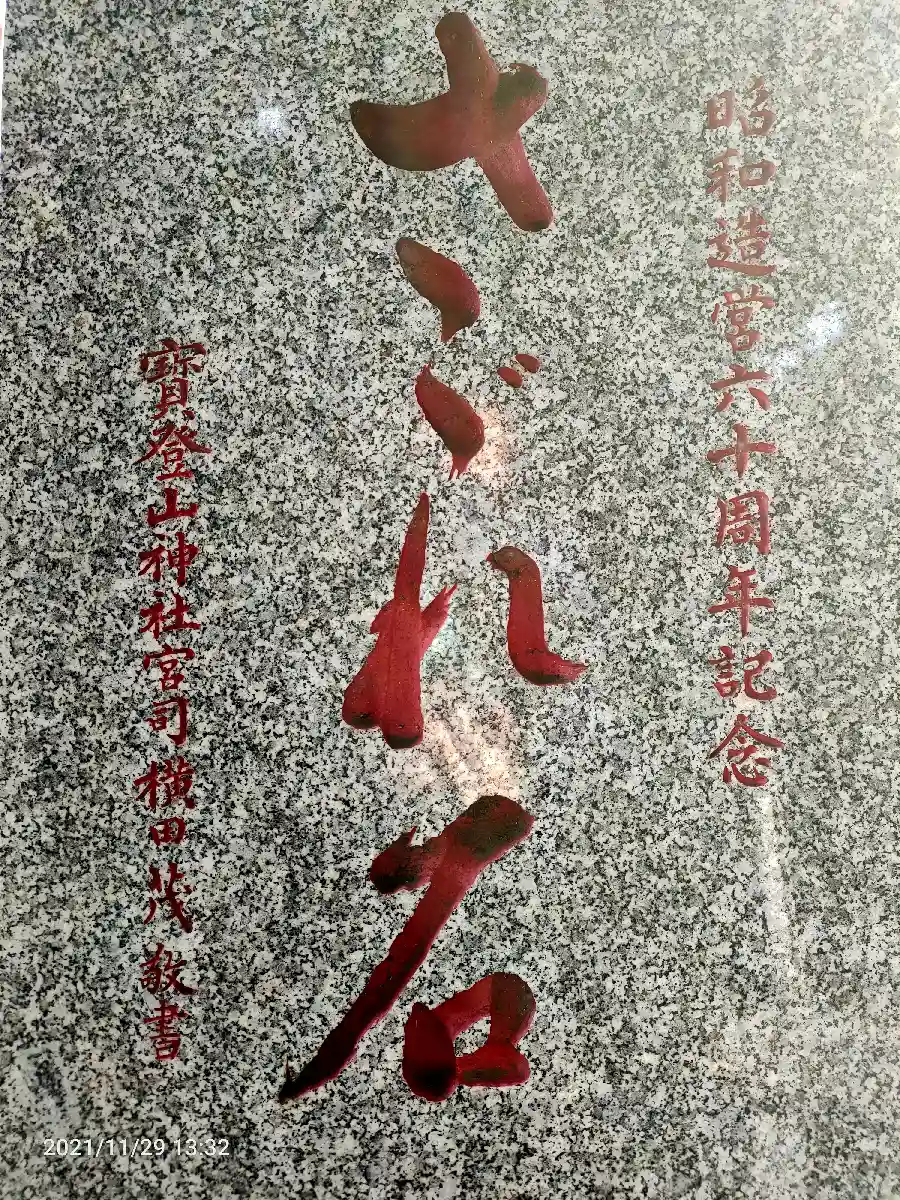 昭和造営六十周年記念
さゞれ石
寶登山神社宮司横田茂敬書
2021/11/29 13:32